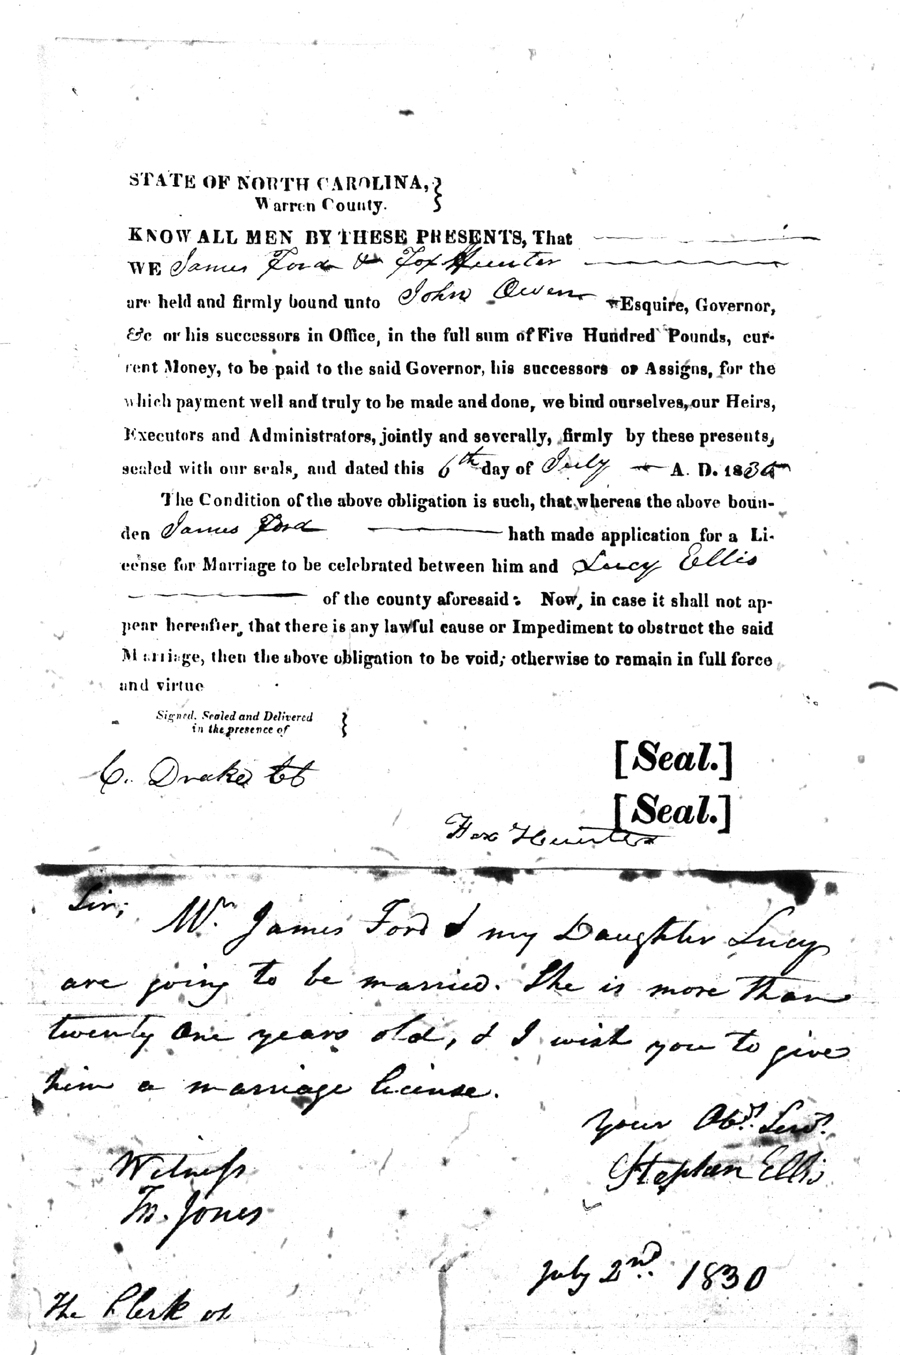 STATE OF NORTH CAROLINA,
Warren County.
KNOW ALL MEN BY THESE PRESENTS, That
WE James Ford & Fox Hunter
are held and firmly bound unto John Owen Esquire, Governor,
&c or his successors in Office, in the full sum of Five Hundred Pounds, cur-
rent Money, to be paid to the said Governor, his successors or Assigns, for the
which payment well and truly to be made and done, we bind ourselves, our Heirs,
Executors and Administrators, jointly and severally, firmly by these presents,
sealed with our seals, and dated this 6th day of July A. D. 18
The Condition of the above obligation is such, that whereas the above boun-
den James Ford hath made application for a Li-
cense for Marriage to be celebrated between him and Lucy Ellis
of the county aforesaid: Now, in case it shall not ap-
pear hereafter, that there is any lawful cause or Impediment to obstruct the said
Marriage, then the above obligation to be void; otherwise to remain in full force
and virtue
Signed, Sealed and Delivered
in the presence of
[Seal.]
C. Drake
[Seal.]
Fox Hunter
Sir;
Mr. James Ford & my Daughter Lucy
are going to be married. She is more than
twenty one years old, & I wish you to give
him a marriage license.
Your Obt. Servt.
Stephen Ellis
Witness
Th. Jones
July 2nd. 1830
The Clerk of